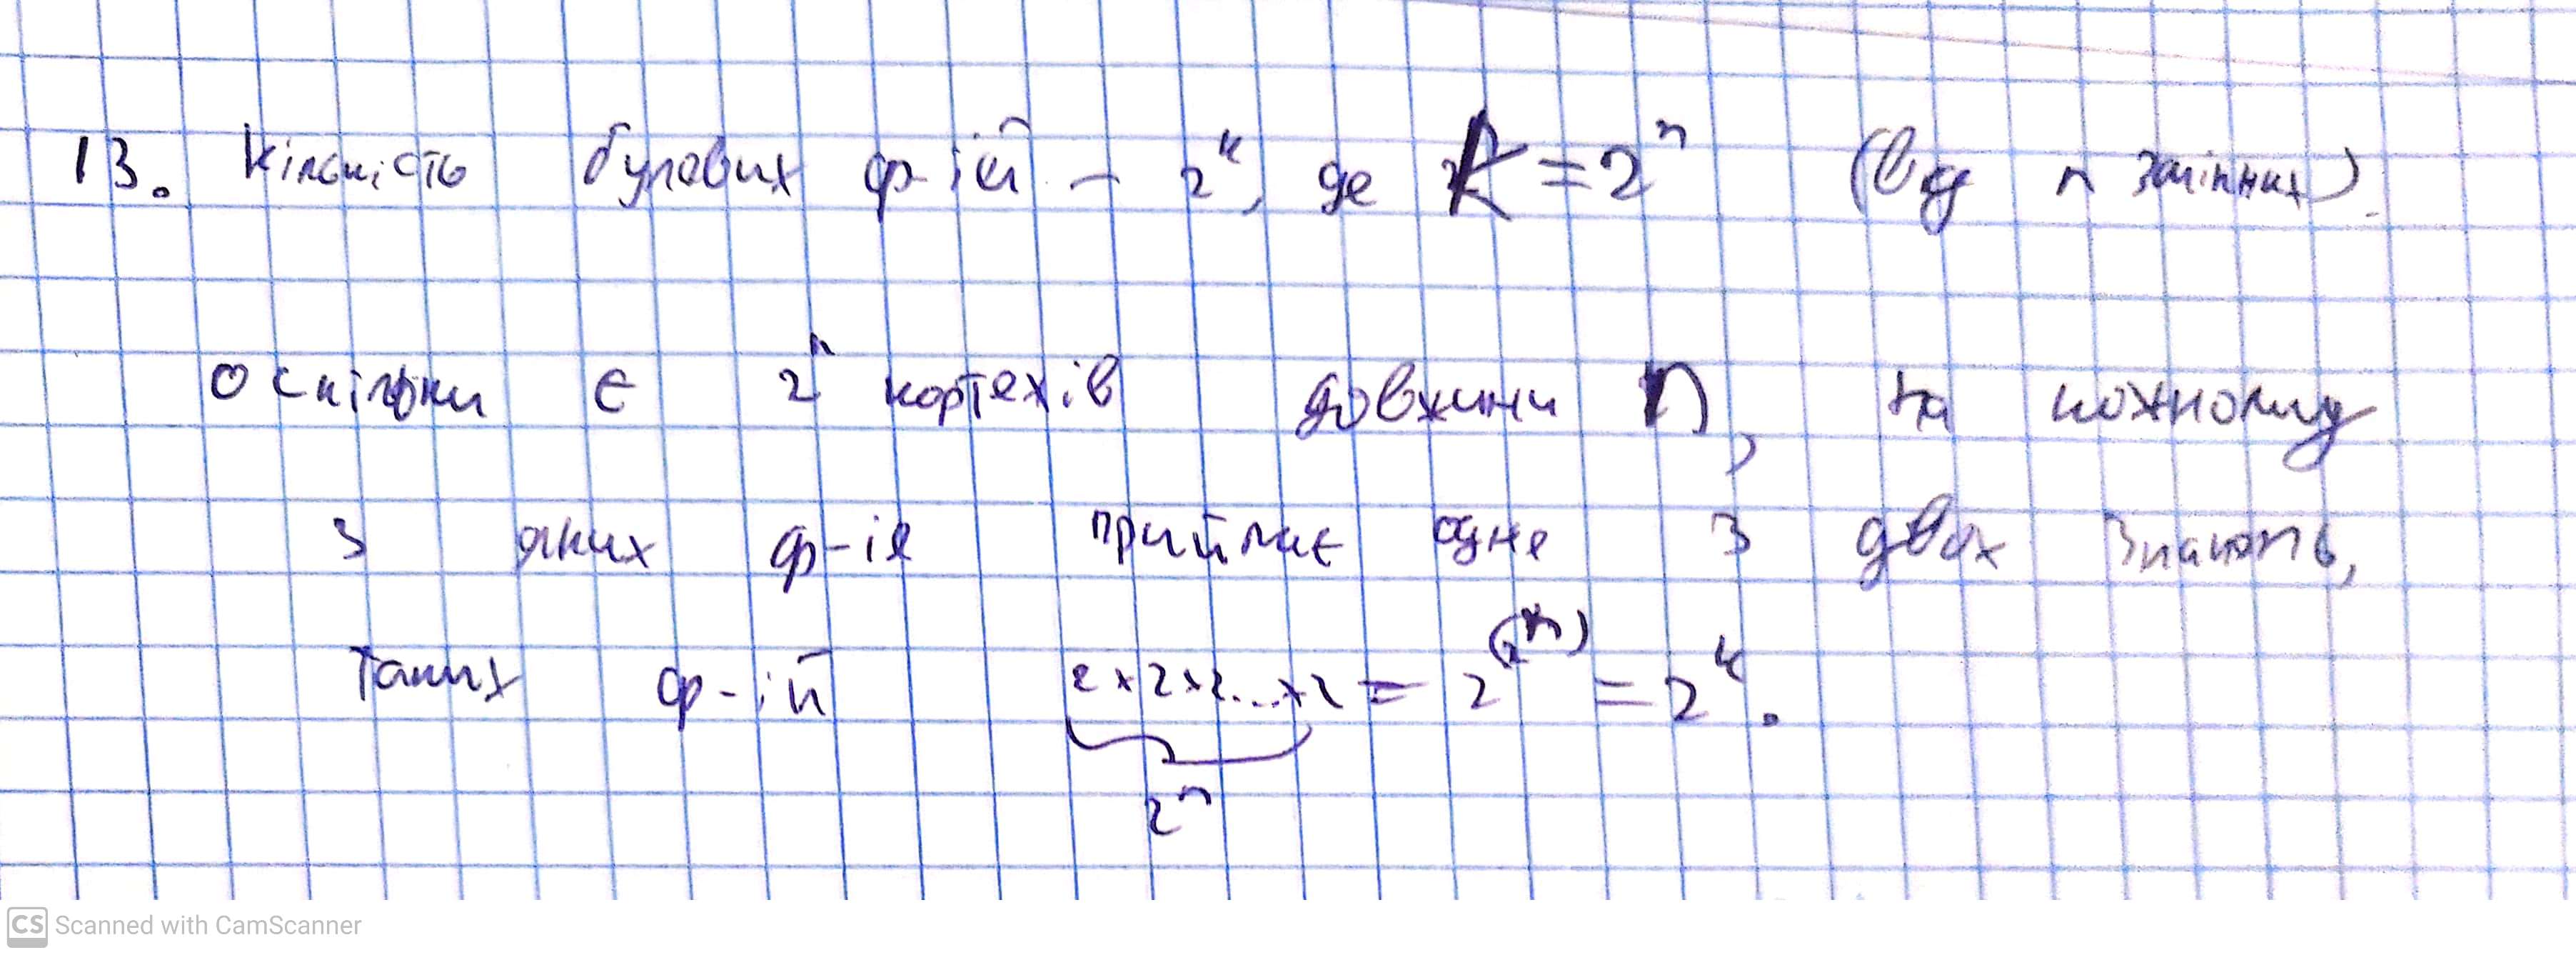 13. Кількість булевих ф-ій – 2ᵏ, де k = 2ⁿ (від n змінних).
Оскільки є 2ⁿ кортежів довжини n, на кожному
з яких ф-ія приймає одне з двох значень,
таких ф-ій 2×2×2...×2 = 2^(2ⁿ) = 2ᵏ.
2ⁿ
CS Scanned with CamScanner